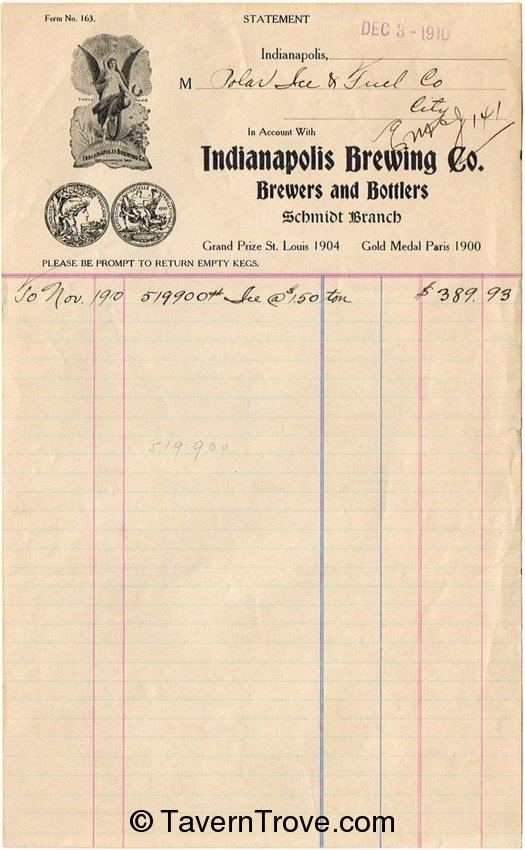 Form No. 163.
STATEMENT
DEC 3 - 1910
Indianapolis,
M Polar Ice & Fuel Co
City
141
TRADE MARK
INDIANAPOLIS BREWING CO.
In Account With
Indianapolis Brewing Co.
Brewers and Bottlers
Schmidt Branch
Grand Prize St. Louis 1904 Gold Medal Paris 1900
PLEASE BE PROMPT TO RETURN EMPTY KEGS.
To Nov. 1910 519900# Ice @ $1.50 ton $ 389.93
519900
© TavernTrove.com